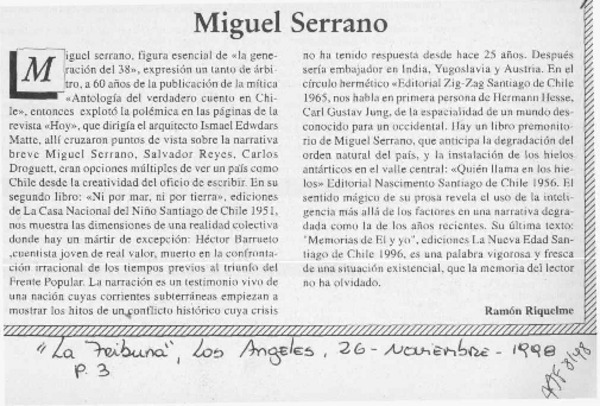 Miguel Serrano
Miguel serrano, figura esencial de «la gene-
ración del 38», expresión un tanto de árbi-
tro, a 60 años de la publicación de la mítica
«Antología del verdadero cuento en Chi-
le», entonces explotó la polémica en las páginas de la
revista «Hoy», que dirigía el arquitecto Ismael Edwdars
Matte, allí cruzaron puntos de vista sobre la narrativa
breve Miguel Serrano, Salvador Reyes, Carlos
Droguett, eran opciones múltiples de ver un país como
Chile desde la creatividad del oficio de escribir. En su
segundo libro: «Ni por mar, ni por tierra», ediciones
de La Casa Nacional del Niño Santiago de Chile 1951,
nos muestra las dimensiones de una realidad colectiva
donde hay un mártir de excepción: Héctor Barrueto
,cuentista joven de real valor, muerto en la confronta-
ción irracional de los tiempos previos al triunfo del
Frente Popular. La narración es un testimonio vivo de
una nación cuyas corrientes subterráneas empiezan a
mostrar los hitos de un conflicto histórico cuya crisis
no ha tenido respuesta desde hace 25 años. Después
sería embajador en India, Yugoslavia y Austria. En el
círculo hermético «Editorial Zig-Zag Santiago de Chile
1965, nos habla en primera persona de Hermann Hesse,
Carl Gustav Jung, de la espacialidad de un mundo des-
conocido para un occidental. Hay un libro premonito-
rio de Miguel Serrano, que anticipa la degradación del
orden natural del país, y la instalación de los hielos
antárticos en el valle central: «Quién llama en los hie-
los» Editorial Nascimento Santiago de Chile 1956. El
sentido mágico de su prosa revela el uso de la inteli-
gencia más allá de los factores en una narrativa degra-
dada como la de los años recientes. Su última texto:
"Memorias de El y yo", ediciones La Nueva Edad San-
tiago de Chile 1996, es una palabra vigorosa y fresca
de una situación existencial, que la memoria del lector
no ha olvidado.
Ramón Riquelme
"La Tribuna", Los Angeles, 26-Noviembre-1998
P. 3